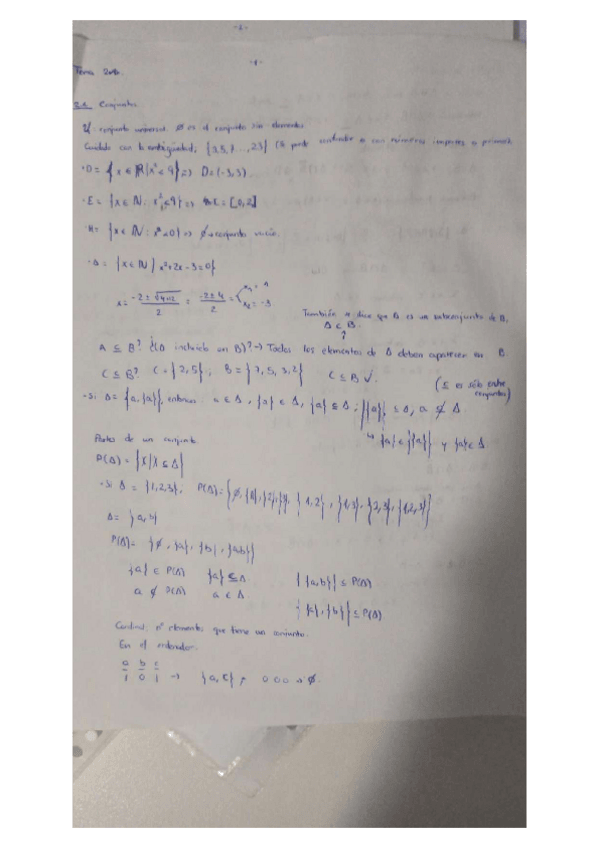 -1-
Tema 2
2.1. Conjuntos
U conjunto universal. Ø es el conjunto sin elementos.
Cuidado con la ambigüedad; {3,5,7...,23} (Se puede confundir con números impares o primos).
·D = {x ∈ R | x² < 9} => D = (-3,3)
·E = {x ∈ N : x² < 9} => E = [0,2]
·H = {x ∈ N : x² < 0} => Ø → conjunto vacío.
·A = {x ∈ N / x²+2x-3=0}
x = -2 ± √4+12 / 2 = -2±4 / 2 = x₁ = 1
x₂ = -3
También se dice que A es un subconjunto de B,
A ⊂ B.
?
A ⊆ B? ¿(A incluido en B)? → Todos los elementos de A deben aparecer en B
C ⊆ B? C = {2,5}; B = {7,5,3,2} C ⊆ B ✓. (⊆ es sólo entre conjuntos)
·Si A = {a,{a}}, entonces a ∈ A, {a} ∈ A, {a} ⊆ A; {{a}} ⊆ A; a ⊄ A
↳ {a} ∈ {{a}} y {a} ∈ A
Partes de un conjunto
P(A) = {X / X ⊆ A}
·Si A = {1,2,3}; P(A) = {Ø, {1}, {2}, {3}, {1,2}, {1,3}, {2,3}, {1,2,3}}
A = {a,b}
P(A) = {Ø, {a}, {b}, {a,b}}
{a} ∈ P(A) {a} ⊆ A {{a,b}} ⊆ P(A)
a ∉ P(A) a ∈ A. {{a},{b}} ⊆ P(A)
Cardinal: nº elementos que tiene un conjunto.
En el ordenador.
a b c
1 0 1 → {a,c}; 000 → Ø.